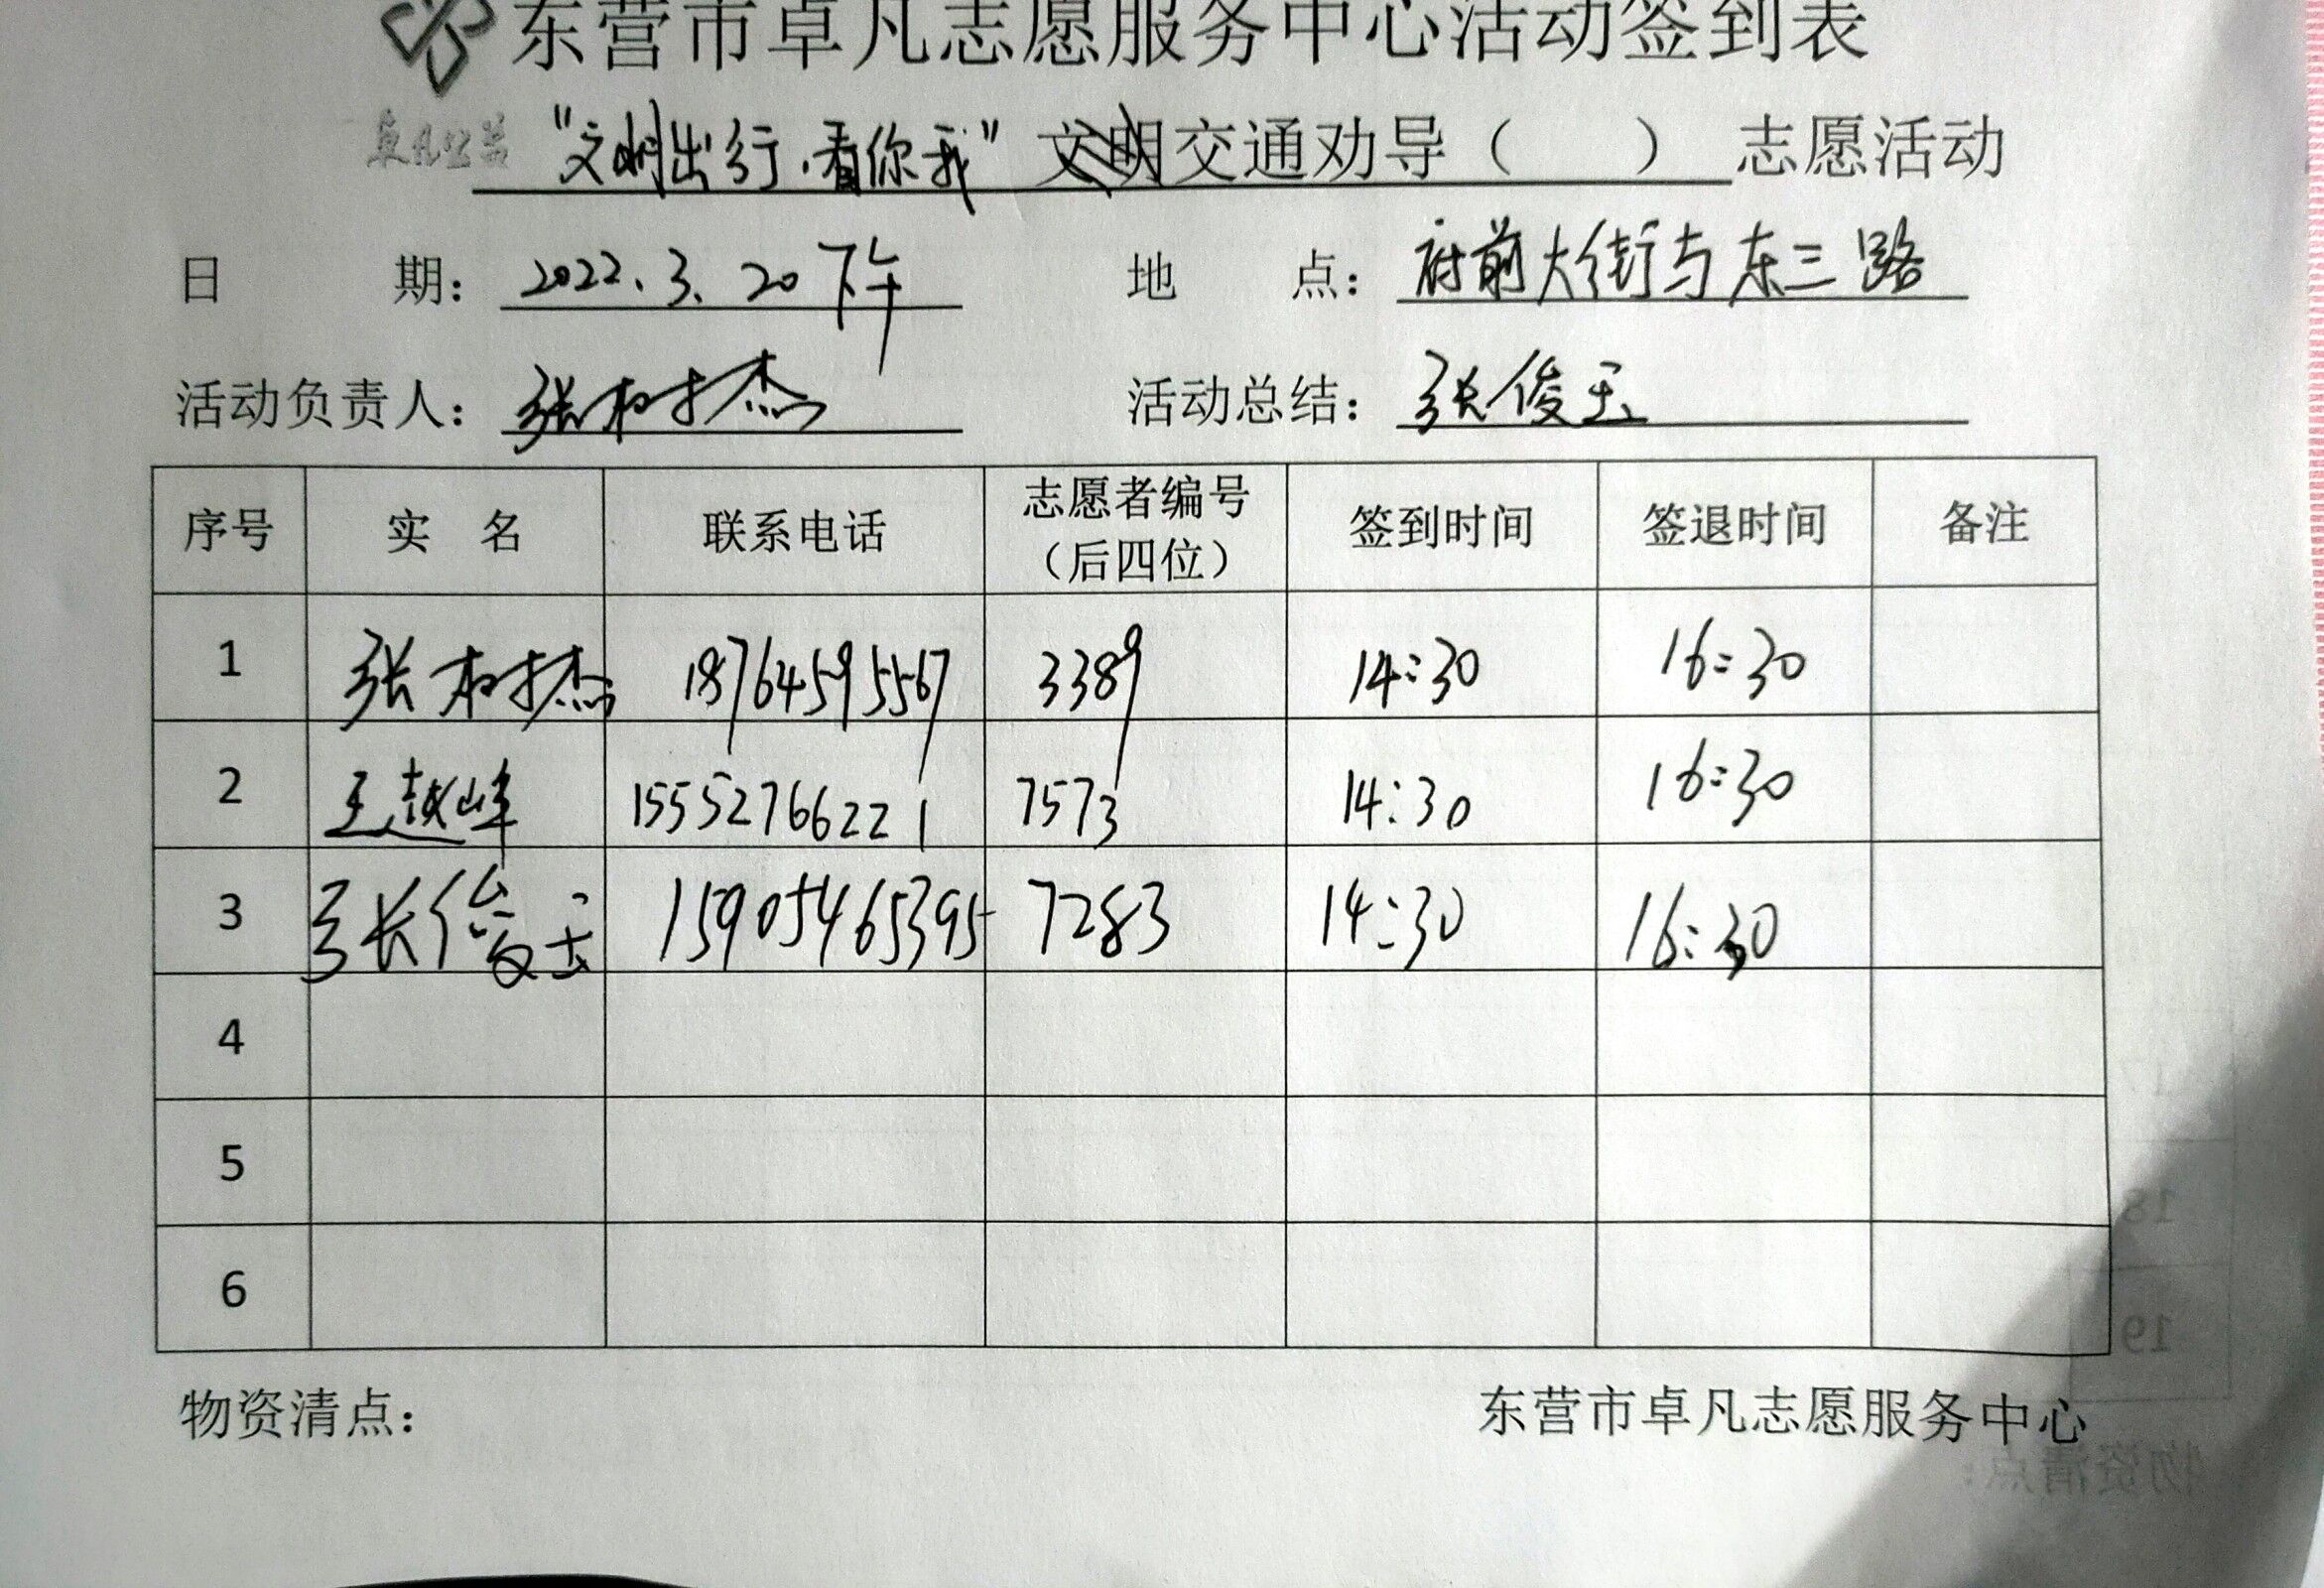 东营市卓凡志愿服务中心活动签到表
卓凡公益
“文明出行,看你我”文明交通劝导（ ）志愿活动
日 期：2022.3.20下午 地 点：府前大街与东三路
活动负责人：张树杰 活动总结：张俊玉
序号 实 名 联系电话 志愿者编号（后四位） 签到时间 签退时间 备注
1 张树杰 18764595567 3389 14:30 16:30
2 王越峰 15552766221 7573 14:30 16:30
3 张俊玉 15905465395 7283 14:30 16:30
4
5
6
物资清点： 东营市卓凡志愿服务中心
17
18
19
物资清点：